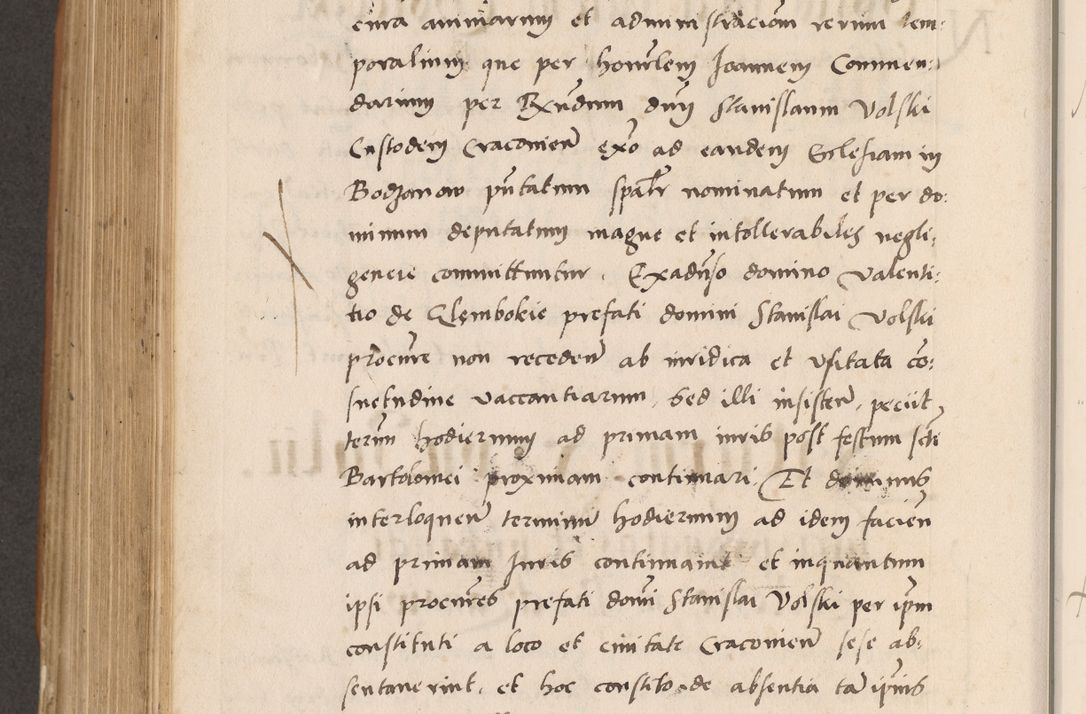 cura animarum et administracioni rerum tem:
poralium que per honorlem Joannem Commen:
darium per Rxndum dnm Stanislaum Volski
Custodem Cracovien exo ad eandem Ecclesiam in
Bodzanow pntatum spalr nominatum et per do:
minum deputatum magne et intollerabiles negli:
gencie committuntur. Exadverso domino Valenti:
no de Glembokie prefati domini Stanislai Volski
procure non receden ab iuridica et usitata co:
suetudine vaccantiarum, sed illi insisten, peciit
termn hodiernum ad primam iuris post festum scti
Bartolomei proximam continuari. Et dominus
interloquen terminum hodiernum ad idem facien
ad primam Juris continuavit et inquantum
ipsi procures prefati domi Stanislai Volski per ipm
constituti a loco et civitate Cracovien sese ab:
sentaverint, et hoc constito de absentia ta ipius